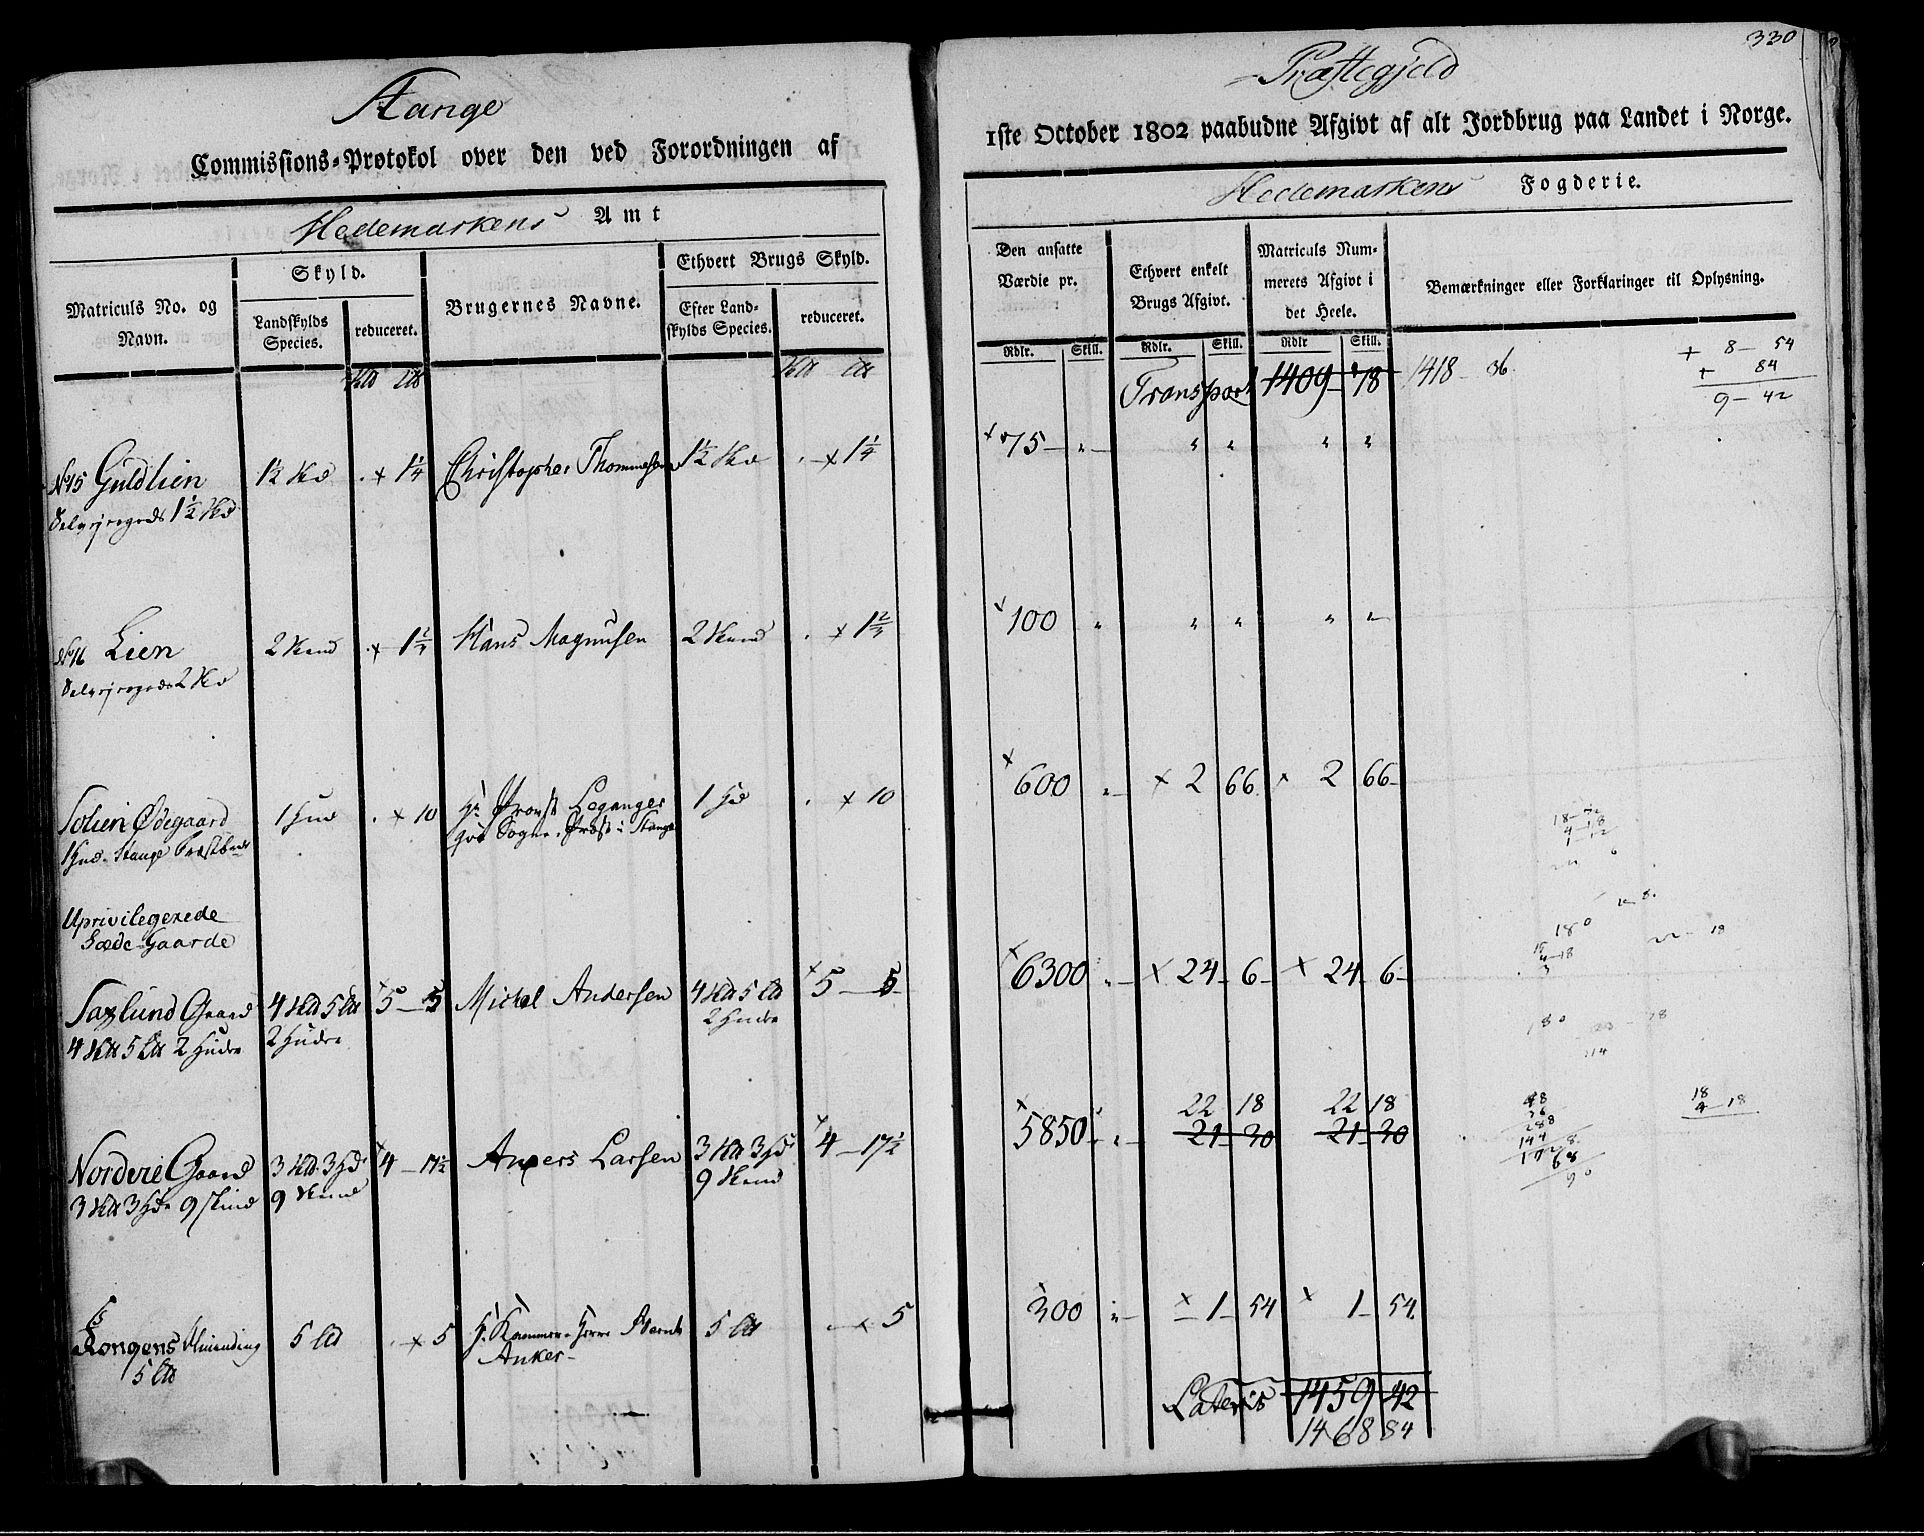 330
Stange Præstegjeld
Commissions-Protokol over den ved Forordningen af 1ste October 1802 paabudne Afgivt af alt Jordbrug paa Landet i Norge.
Hedemarkens Amt
Hedemarkens Fogderie.
Matriculs No. og Navn.
Skyld.
Landskylds Species.
reduceret.
Brugernes Navne.
Ethvert Brugs Skyld.
Efter Landskylds Species.
reduceret.
Den ansatte Værdie pr.
Rdlr. Skill.
Ethvert enkelt Brugs Afgivt.
Rdlr. Skill.
Matriculs Nummerets Afgivt i det Heele.
Rdlr Skill.
Bemærkninger eller Forklaringer til Oplysning.
Transport 1409 - 78 1418 - 36
+ 8 - 54
+ 84
9 - 42
No 15 Guldlien 1½ Skd × 1¼ Christopher Thommesen 1½ Skd × 1¼ 75 - " - " " " "
Selvejregods 1½ Skd
No 16 Lien 2 Skind × 1⅔ Hans Magnusen 2 Skind × 1⅔ 100 " " " " "
Selvejregods 2 Skd
Solien Ødegaard 1 Hud × 10 Hr. Provst Leganger 1 Hd × 10 600 " × 2 66 × 2 66
1 Hud. Stange Præstb. Sogne-Præst i Stange
Upriviligerede
Sæde-Gaarde
Saxlund Gaard 4 Skd 5 Ltt 5 - 5 Michel Andersen 4 Skd 5 Ltt 5 - 5 6300 " × 24 - 6 × 24 - 6
4 Skd 5 Ltt 2 Huder 2 Huder 2 Huder
22 18 22 18
Norderie Gaard 3 Skd. 3 Hd. 4 - 17½ Anders Larsen 3 Skd 3 Hd 4 - 17½ 5850 - " 21 - 30 21 - 30
3 Skd 3 Hdr 9 Skind 9 Skind 9 Skind
Kongens Almending 5 Ltt × 5 Hr. Kammer-Herre Bernt 5 Ltt × 5 300 " × 1 - 54 × 1 - 54
5 Ltt Anker
Lateris 1459 - 42
1468 84